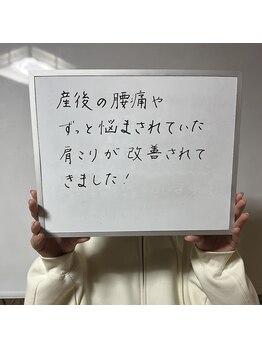 産後の腰痛や
ずっと悩まされていた
肩こりが改善されて
きました!